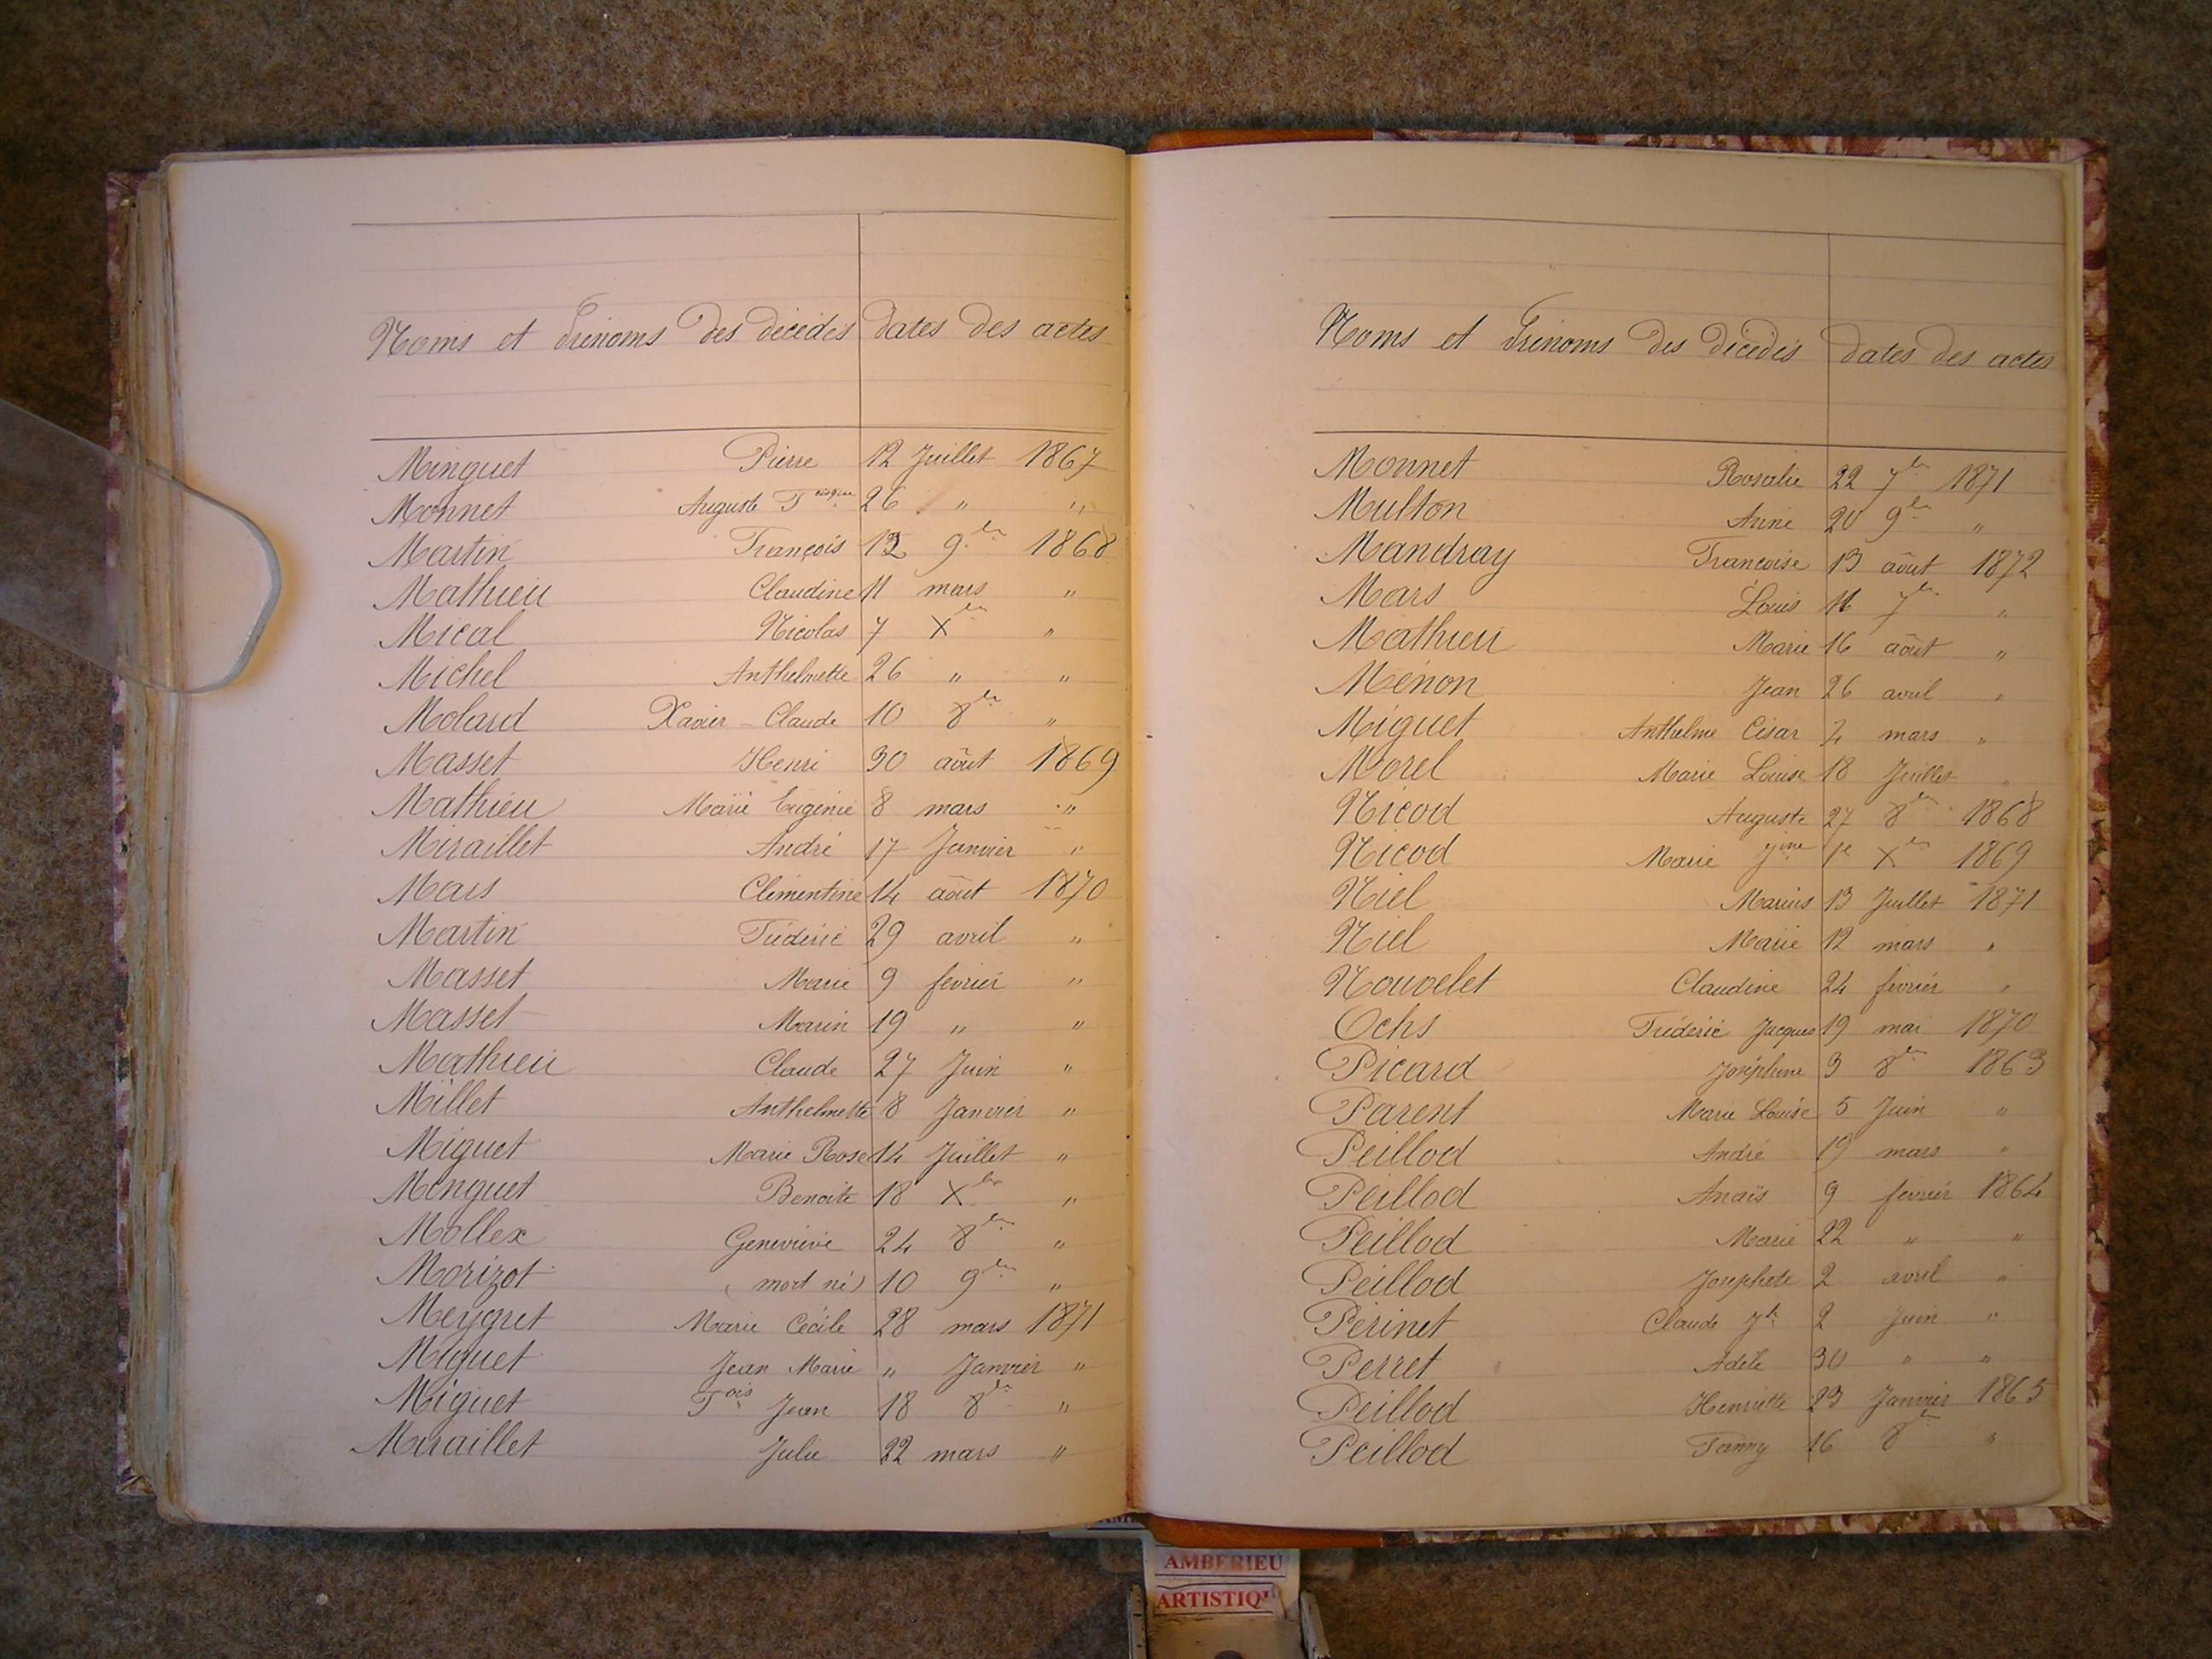 Noms et Prénoms des décédés dates des actes
Minguet Pierre 12 Juillet 1867
Monnet Auguste 26 " "
Martin François 12 9bre 1868
Mathieu Claudine 11 mars "
Mical Nicolas 7 Xbre "
Michel Anthelmette 26 " "
Molard Xavier - Claude 10 8bre "
Masset Henri 30 août 1869
Mathieu Marie Eugénie 8 mars "
Miraillet André 17 Janvier "
Mars Clémentine 14 août 1870
Martin Fréderic 29 avril "
Masset Marie 9 fevrier "
Masset Marin 19 " "
Mathieu Claude 27 Juin "
Millet Anthelmette 8 Janvier "
Miguet Marie Rose 14 Juillet "
Minguet Benoite 18 Xbre "
Mollex Genevieve 24 8bre "
Morizot (mort né) 10 9bre "
Meygret Marie Cécile 28 mars 1871
Miguet Jean Marie " Janvier "
Miguet Fois Jean 18 8bre "
Miraillet Julie 22 mars "
Noms et Prénoms des décédés dates des actes
Monnet Rosalie 22 7bre 1871
Multon Anne 20 9bre "
Mandray Francoise 13 août 1872
Mars Louis 16 7bre "
Mathieu Marie 16 août "
Ménon Jean 26 avril "
Miguet Anthelme César 2 mars "
Morel Marie Louise 18 Juillet "
Nicod Auguste 27 8bre 1868
Nicod Marie Jine 1e Xbre 1869
Niel Marius 13 Juillet 1871
Niel Marie 12 mars "
Nouvelet Claudine 24 février "
Ochs Fréderic Jacques 19 mai 1870
Picard Joséphine 3 8bre 1863
Parent Marie Louise 5 Juin "
Peillod André 19 mars "
Peillod Anaïs 9 février 1864
Peillod Marie 22 " "
Peillod Josephete 2 avril "
Périnet Claude Jh 2 Juin "
Perret Adèle 30 " "
Peillod Henriette 23 Janvier 1865
Peillod Fanny 16 8bre "
AMBERIEU
ARTISTIQU